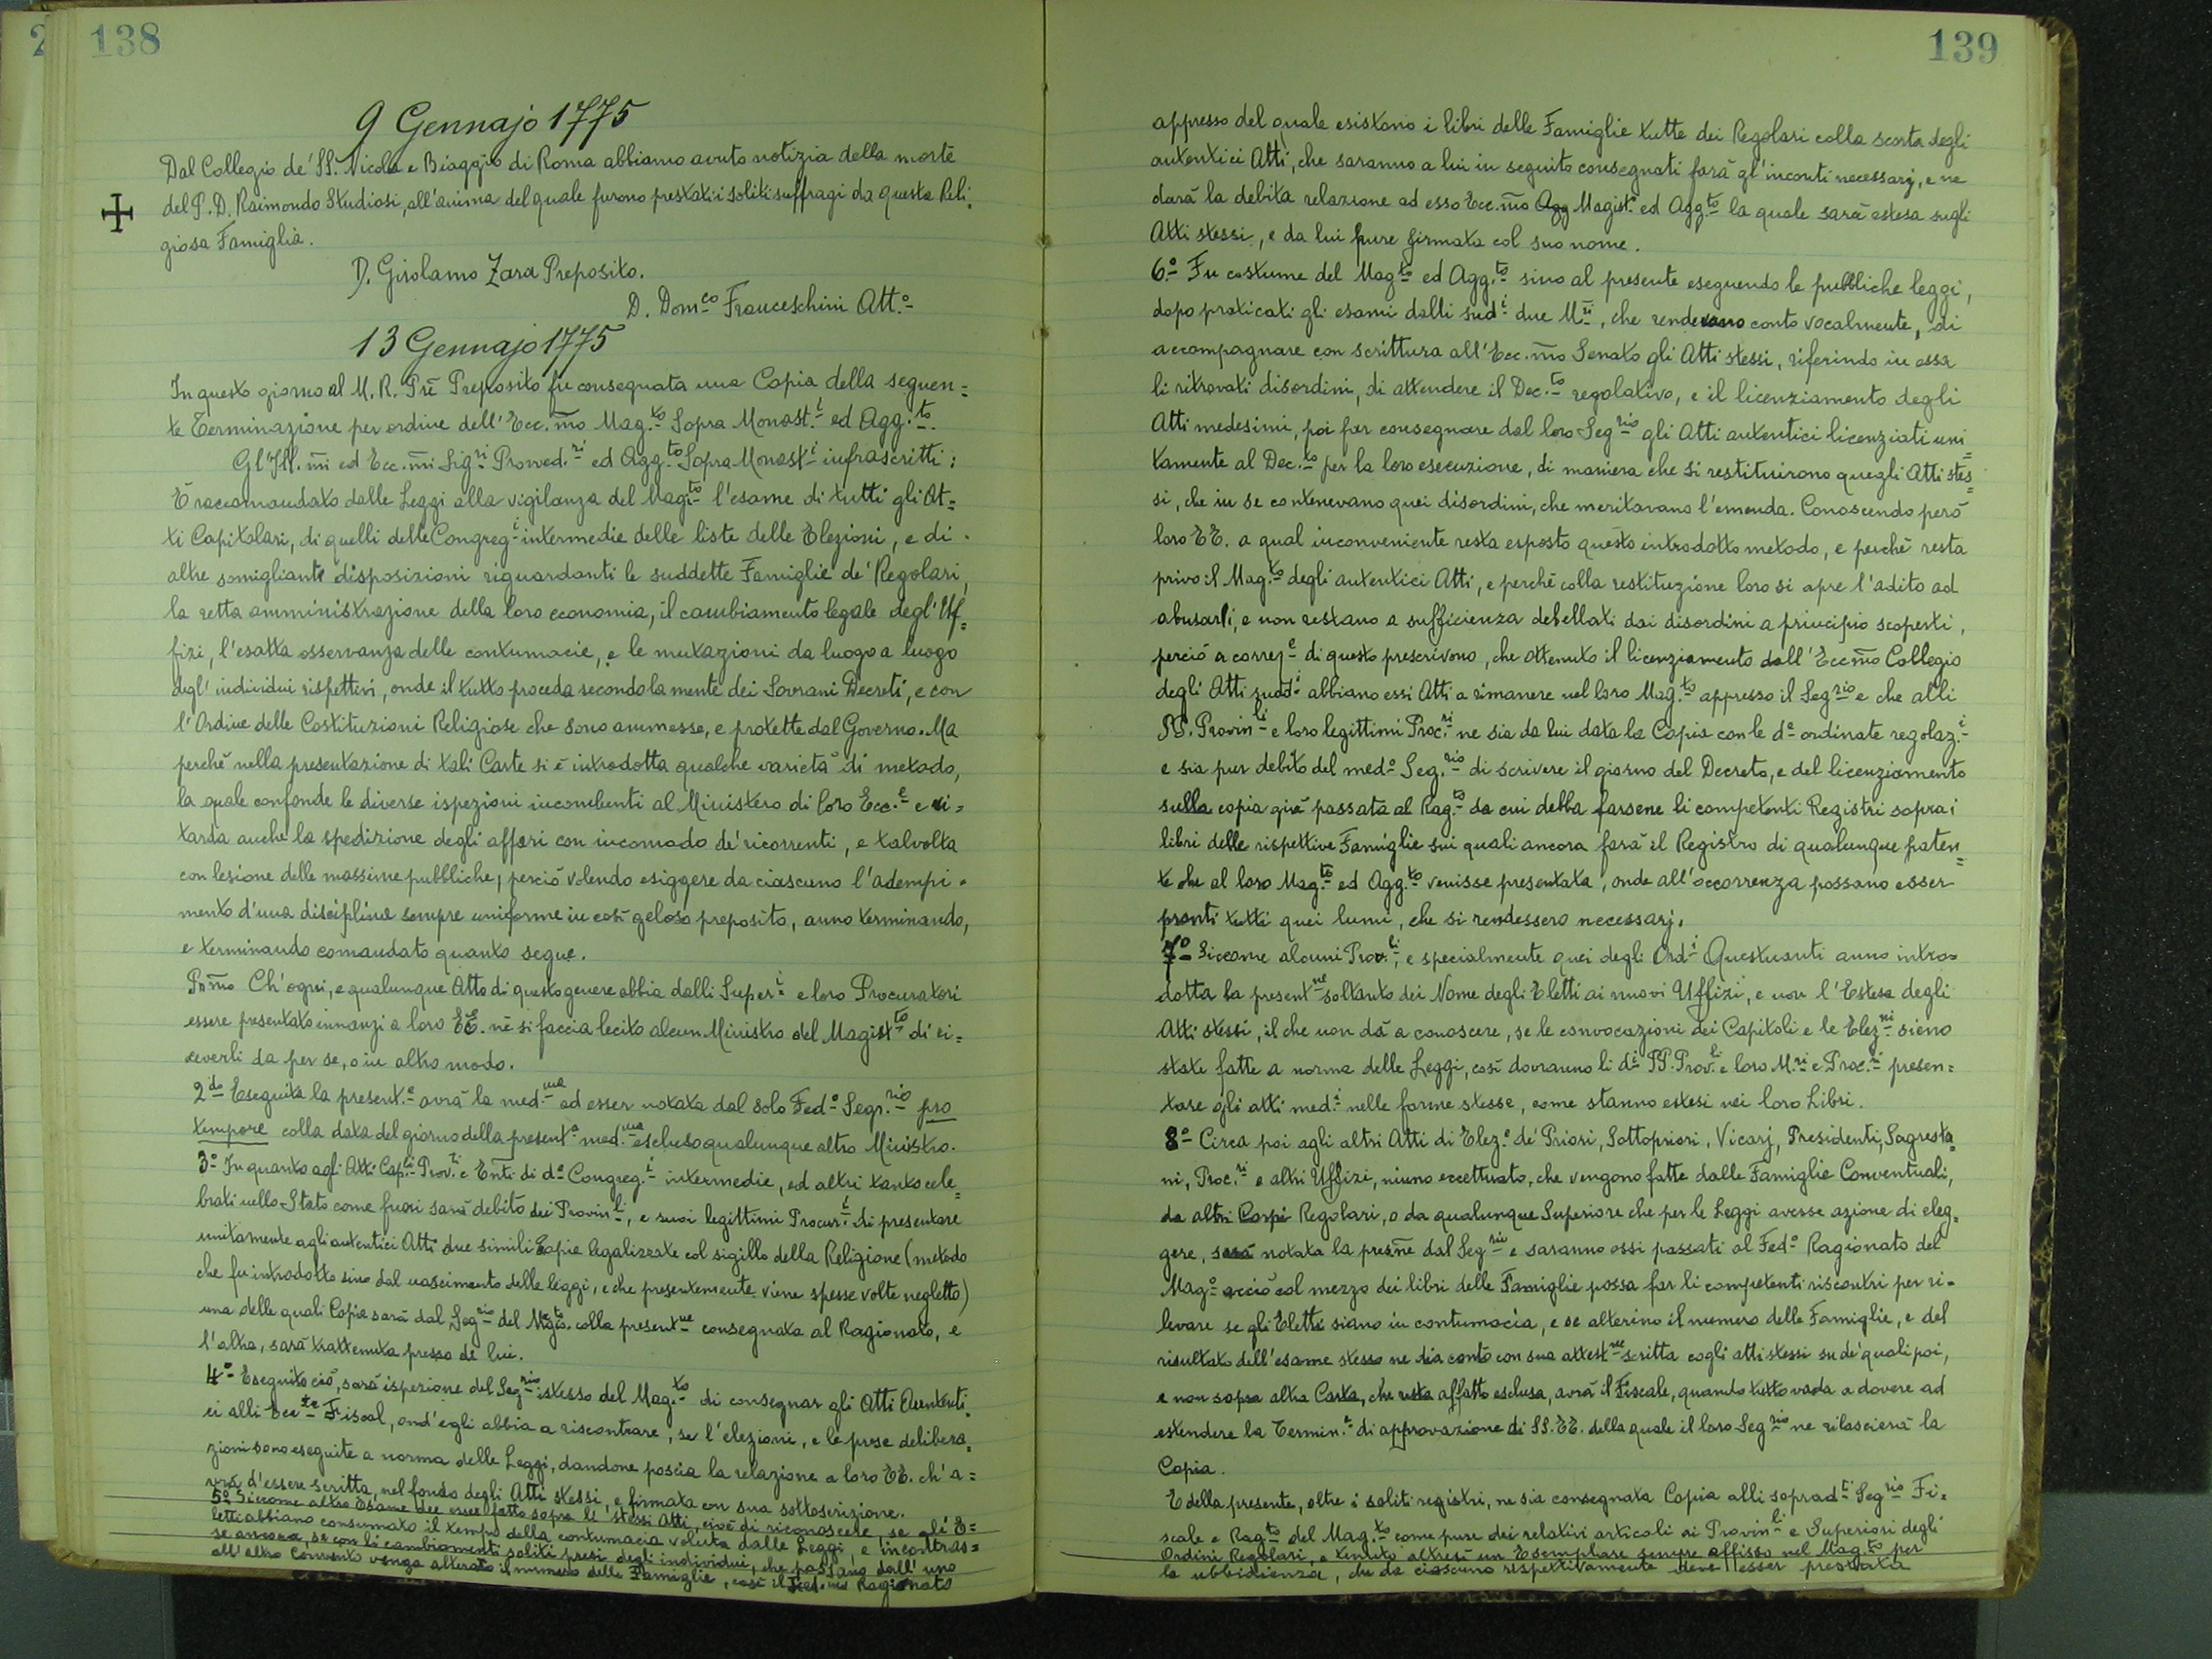 138
9 Gennajo 1775
Dal Collegio de' SS. Nicola e Biaggio di Roma abbiamo avuto notizia della morte
del P. D. Raimondo Studiosi, all'anima del quale furono prestati i soliti suffragi da questa Reli=
giosa Famiglia.
D. Girolamo Zara Preposito.
D. Dom.co Franceschini Att.o
13 Gennajo 1775
In questo giorno al M. R. Prē Preposito fu consegnata una Copia della seguen=
te Terminazione per ordine dell' Ecc.mo Mag.to Sopra Monast.i ed Agg.to.
Gl'Ill.mi ed Ecc.mi Sig.ri Provved.ri ed Agg.to Sopra Monast.i infrascritti:
È raccomandato dalle Leggi alla vigilanza del Mag.to l'esame di tutti gli At=
ti Capitolari, di quelli delle Congreg.i intermedie delle liste delle Elezioni, e di
altre somiglianti disposizioni riguardanti le suddette Famiglie de' Regolari,
la retta amministrazione della loro economia, il cambiamento legale degl' Uf=
fizi, l'esatta osservanza delle contumacie, e le mutazioni da luogo a luogo
degl' individui rispettivi, onde il tutto proceda secondo la mente dei Sovrani Decreti, e con
l'Ordine delle Costituzioni Religiose che sono ammesse, e protette dal Governo. Ma
perchè nella presentazione di tali Carte si è introdotta qualche varietà di metodo,
la quale confonde le diverse ispezioni incombenti al Ministero di loro Ecc.e e ri=
tarda anche la spedizione degli affari con incomodo de' ricorrenti, e talvolta
con lesione delle massime pubbliche, perciò volendo esiggere da ciascuno l'adempi=
mento d'una disciplina sempre uniforme in così geloso preposito, anno terminando,
e terminando comandato quanto segue.
Pr̄mo Ch'ogni, e qualunque Atto di questo genere abbia dalli Super.i e loro Procuratori
essere presentato innanzi a loro EE. nè si faccia lecito alcun Ministro del Magist.to di ri=
ceverli da per se, o in altro modo.
2.do Eseguita la present.e avrà la med.ma ad esser notata dal solo Fed.o Segr.rio pro
tempore colla data del giorno della present.e med.ma escluso qualunque altro Ministro.
3.o In quanto agl'Atti Cap.li Prov.li e Enti di d.e Congreg.i intermedie, ed altri tanto cele=
brati nello Stato come fuori sarà debito dei Provin.li, e suoi legittimi Procur.i di presentare
unitamente agli autentici Atti due simili Copie legalizzate col sigillo della Religione (metodo
che fu introdotto sino dal nascimento delle leggi, e che presentemente viene spesse volte negletto)
una delle quali Copie sarà dal Seg.rio del Mag.to colla present.ne consegnata al Ragionato, e
l'altra, sarà trattenuta presso di lui.
4.o Eseguito ciò, sarà ispezione del Seg.rio istesso del Mag.to di consegnar gli Atti Autenti=
ci alli Ecc.te Fiscal, ond'egli abbia a riscontrare, se l'elezioni, e le prese delibera=
zioni sono eseguite a norma delle Leggi, dandone poscia la relazione a loro EE. ch'a=
vrà d'essere scritta, nel fondo degli Atti stessi, e firmata con sua sottoscrizione.
5.o Siccome altro Esame dee esser fatto sopra li stessi Atti, cioè di riconoscere, se gli E=
letti abbiano consumato il tempo della contumacia voluta dalle Leggi, e incontras=
se ancora, se con li cambiamenti soliti presi degli individui, che passano dall'uno
all'altro Convento venga alterato il numero delle Famiglie, così il Ragionato
139
appresso del quale esistono i libri delle Famiglie tutte dei Regolari colla scorta degli
autentici Atti, che saranno a lui in seguito consegnati farà gl'incontri necessarj, e ne
darà la debita relazione ad esso Ecc.mo Agg Magist.o ed Agg.to la quale sarà estesa sugli
Atti stessi, e da lui pure firmata col suo nome.
6.o Fu costume del Mag.to ed Agg.to sino al presente eseguendo le pubbliche leggi,
dopo praticati gli esami dalli sud.i due M.ri, che rendevano conto vocalmente, di
accompagnare con scrittura all'Ecc.mo Senato gli Atti stessi, riferindo in essa
li ritrovati disordini, di attendere il Dec.to regolativo, e il licenziamento degli
Atti medesimi, poi far consegnare dal loro Seg.rio gli Atti autentici licenziati uni=
tamente al Dec.to per la loro esecuzione, di maniera che si restituirono quegli Atti stes=
si, che in se contenevano quei disordini, che meritavano l'emenda. Conoscendo però
loro EE. a qual inconveniente resta esposto questo introdotto metodo, e perchè resta
privo il Mag.to degli autentici Atti, e perchè colla restituzione loro si apre l'adito ad
abusarli, e non restano a sufficienza debellati dai disordini a principio scoperti,
perciò a correz.e di questo prescrivono, che ottenuto il licenziamento dall'Ecc.mo Collegio
degli Atti sudd.i abbiano essi Atti a rimanere nel loro Mag.to appresso il Seg.rio e che alli
PP. Provin.li e loro legittimi Proc.ri ne sia da lui data la Copia con le d.e ordinate regolaz.i
e sia pur debito del med.o Seg.rio di scrivere il giorno del Decreto, e del licenziamento
sulla copia già passata al Rag.to da cui debba farsene li competenti Registri sopra i
libri delle rispettive Famiglie sui quali ancora farà il Registro di qualunque paten=
te che al loro Mag.to ed Agg.to venisse presentata, onde all'occorrenza possano esser
pronti tutti quei lumi, che si rendessero necessarj.
7.o Siccome alcuni Prov.li, e specialmente quei degli Ord.i Questuanti anno intro=
dotta la present.ne soltanto dei Nome degli Eletti ai nuovi Uffizi, e non l'Estesa degli
Atti stessi, il che non dà a conoscere, se le convocazioni dei Capitoli e le Elez.ni sieno
state fatte a norma delle Leggi, così dovranno li d.i PP. Prov.li e loro M.ri e Proc.ri presen=
tare gli atti med.i nelle forme stesse, come stanno estesi nei loro Libri.
8.o Circa poi agli altri Atti di Elez.e de' Priori, Sottopriori, Vicarj, Presidenti, Sagresta=
ni, Proc.ri e altri Uffizi, niuno eccettuato, che vengono fatte dalle Famiglie Conventuali,
da altri Corpi Regolari, o da qualunque Superiore che per le Leggi avesse azione di eleg=
gere, sarà notata la presn̄e dal Seg.rio e saranno essi passati al Fed.o Ragionato del
Mag.o acciò col mezzo dei libri delle Famiglie possa far li competenti riscontri per ri=
levare se gli Eletti siano in contumacia, e se alterino il numero delle Famiglie, e del
risultato dell'esame stesso ne dia conto con sua attest.ne scritta cogli atti stessi su de' quali poi,
e non sopra altra Carta, che resta affatto esclusa, avrà il Fiscale, quando tutto vada a dovere ad
estendere la Termin.e di approvazione di SS. EE. della quale il loro Seg.rio ne rilascierà la
Copia.
E della presente, oltre i soliti registri, ne sia consegnata Copia alli soprad.ti Seg.rio Fi=
scale e Rag.to del Mag.to come pure dei relativi articoli ai Provin.li e Superiori degli
Ordini Regolari, e tenuto altresì un Esemplare sempre affisso nel Mag.to per
la ubbidienza, che da ciascuno rispettivamente deve esser prestata